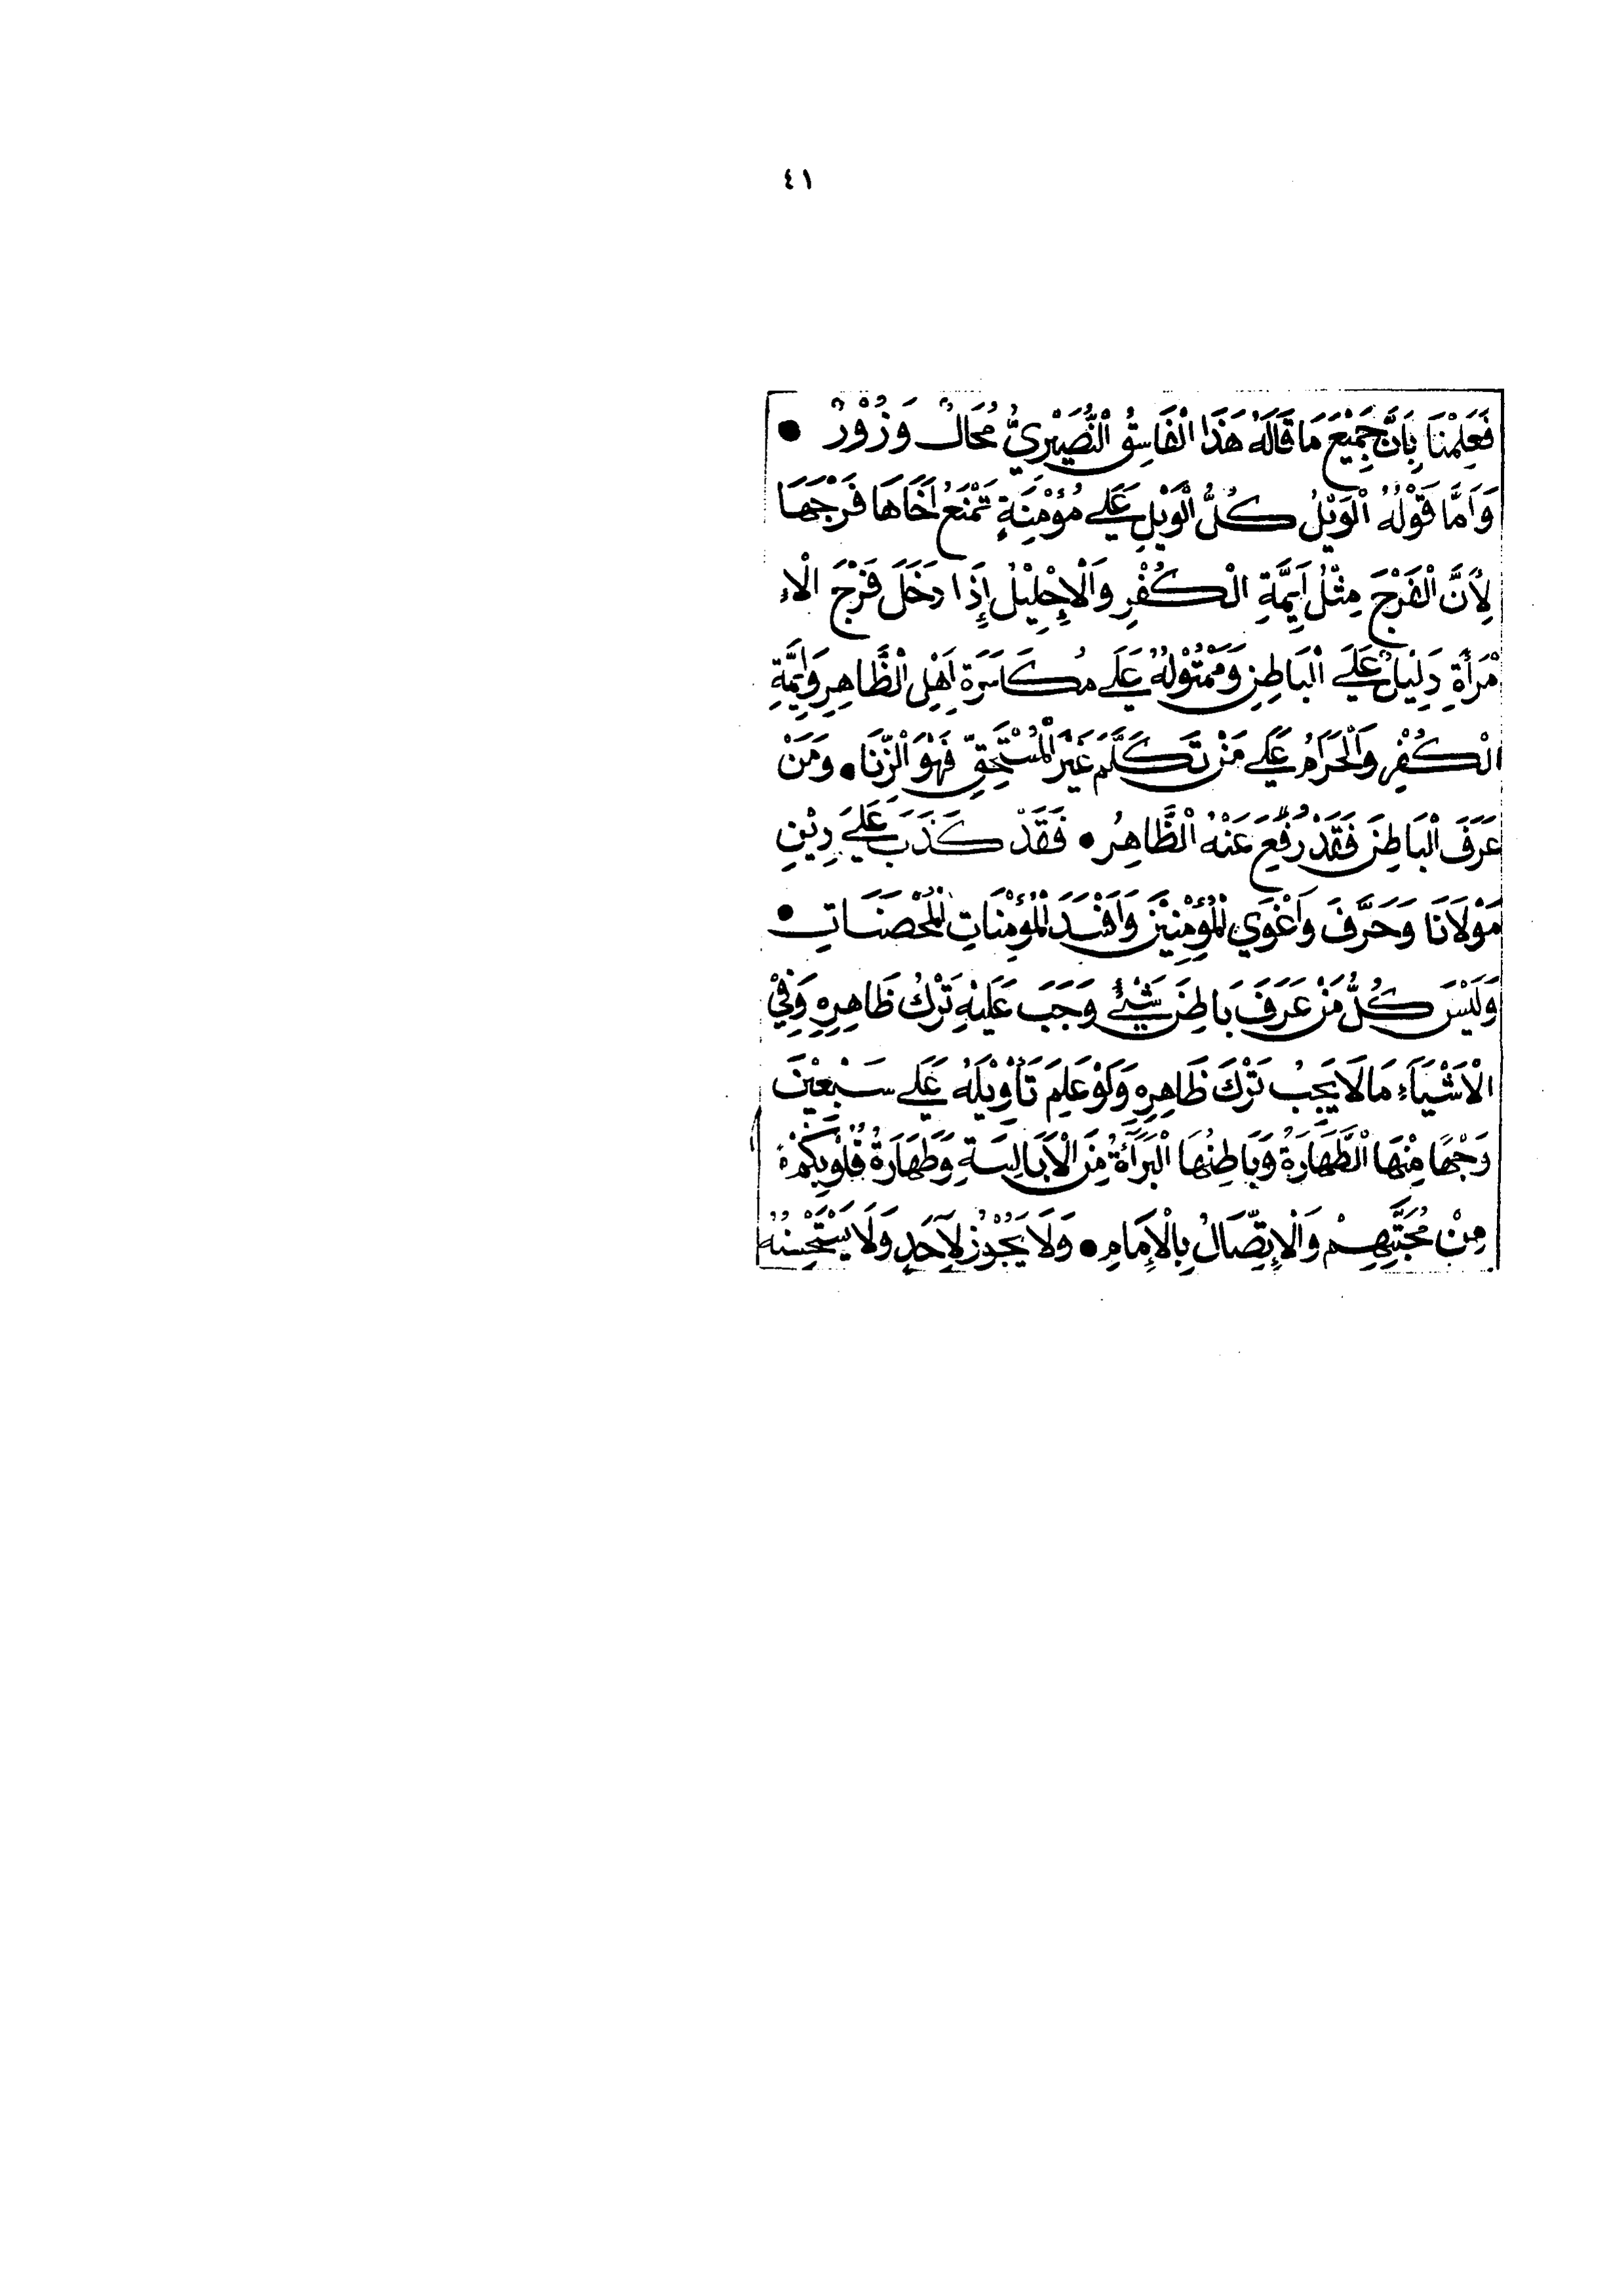 ٤١
فَعَلِمْنَا بِاَنَّ جَمِيْعَ مَا قَالَهُ هَذَا الْفَاسِقُ النُّصَيْرِيُّ مُحَالٌ وَزُوْرٌ •
وَاَمَّا قَوْلُهُ الْوَيْلُ كُلُّ الْوَيْلِ عَلَى مُؤْمِنَةٍ تَمْنَعُ اَخَاهَا فَرْجَهَا
لِأَنَّ الْفَرْجَ مِثْلُ اَيِمَّةِ الْكُفْرِ وَالْإِحْلِيْلُ إِذَا دَخَلَ فَرْجَ الْاِ
مْرَأَةِ دَلِيْلٌ عَلَى الْبَاطِنِ وَمَمْثُوْلُهُ عَلَى مُكَاسَرَةِ اَهْلِ الظَّاهِرِ وَاَيِمَّةِ
الْكُفْرِ وَالْحَرَامُ عَلَى مَنْ تَكَلَّمَ غَيْرَ الْمُسْتَحِقِّ فَهُوَ الزِّنَا • وَمَنْ
عَرَفَ الْبَاطِنَ فَقَدْ رُفِعَ عَنْهُ الظَّاهِرُ • فَقَدْ كَذَبَ عَلَى دِيْنِ
مَوْلَانَا وَحَرَّفَ وَاَغْوَى الْمُؤْمِنِيْنَ وَاَفْسَدَ الْمُؤْمِنَاتِ الْمُحْصَنَاتِ •
وَلَيْسَ كُلُّ مَنْ عَرَفَ بَاطِنَ شَيْءٍ وَجَبَ عَلَيْهِ تَرْكُ ظَاهِرِهِ وَفِيْ
الْاَشْيَاءِ مَا لَا يَجِبُ تَرْكَ ظَاهِرِهِ وَلَوْ عَلِمَ تَأْوِيْلَهُ عَلَى سَبْعِيْنَ
وَجْهًا مِنْهَا الطَّهَارَةُ وَبَاطِنُهَا الْبَرَأَةُ مِنَ الْاَبَالِسَةِ وَطَهَارَةُ قُلُوْبِكُمْ
مِنْ مُحَبَّتِهِمْ وَالْاِتِّصَالُ بِالْاِمَامِ • وَلَا يَجُوْزُ لِاَحَدٍ وَلَا يَسْتَحْسِنُهُ